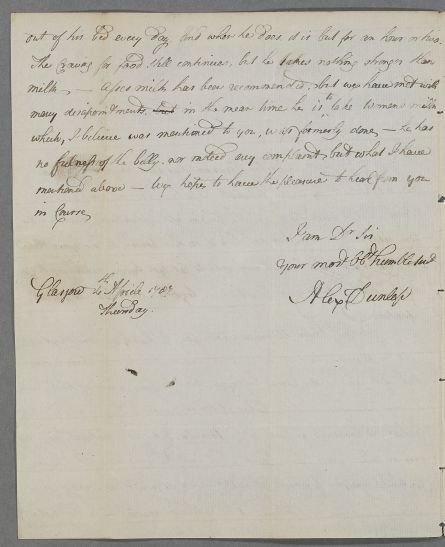 out of his bed every day, and when he does it is but for an hour or two.
The craving for food still continues, but he takes nothing stronger than
milk, — Asses milk has been recommended, but we have met with
many disapointments, but in the mean time he is to take Womens milk
which, I believe was mentioned to you, was formerly done, — he has
no fullness of the belly, nor indeed any complaint, but what I have
mentioned above — We hope to have the pleasure to hear from you
in Course,
I am Dr Sir
Your most obt humble Servt
Alexr Dunlop
Glasgow Aprile 1787
Thursday.